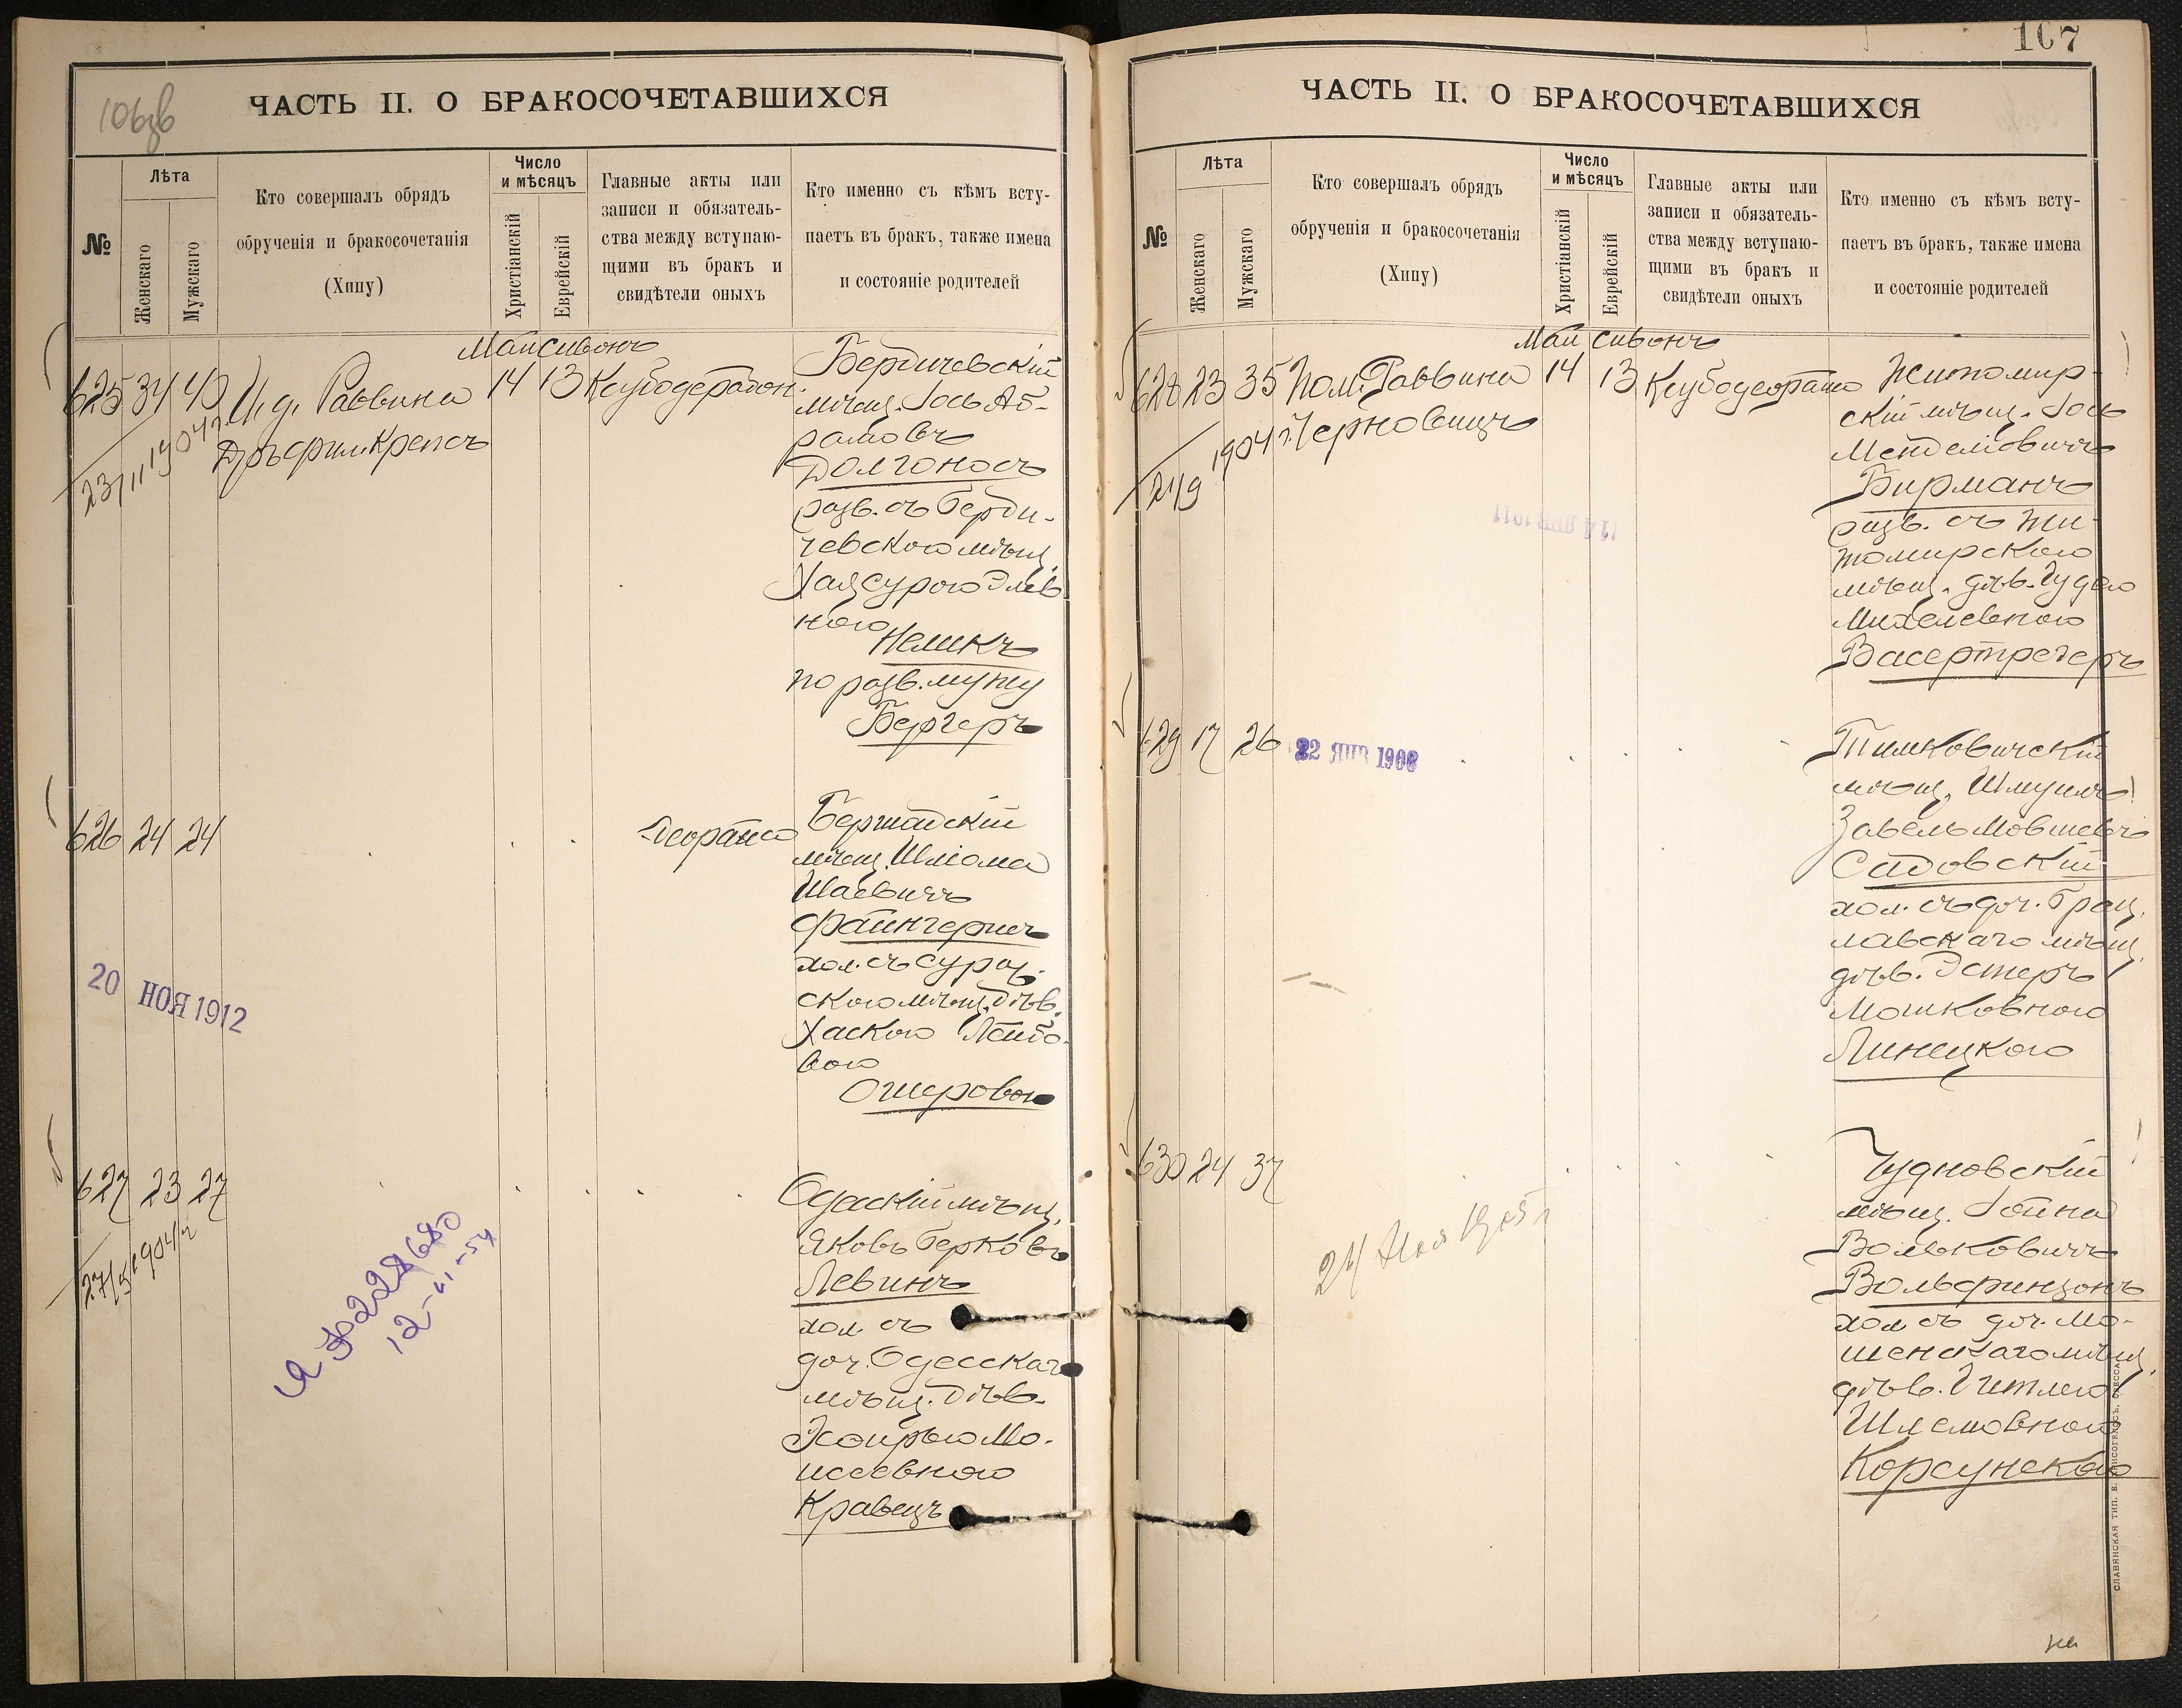 106об
ЧАСТЬ II. О БРАКОСОЧЕТАВШИХСЯ
№
Лѣта
Женскаго
Мужскаго
Кто совершалъ обрядъ
обрученія и бракосочетанія
(Хипу)
Число
и мѣсяцъ
Христіанскій
Еврейскій
Главные акты или
записи и обязатель-
ства между вступаю-
щими въ бракъ и
свидѣтели оныхъ
Кто именно съ кѣмъ всту-
паетъ въ бракъ, также имена
и состояніе родителей
Май Сивонъ
625 34 40 И. д. Раввина 14 13
Д-ръ фил. Крепсъ
23/II 1904 г.
Бердичевскій
мѣщ. Іось Аб-
рамовъ
Долгоносъ
разв. съ Берди-
чевскою мѣщ.
Хая Сурою Элев
ною
по разв. мужу
Бергеръ
626 24 24
Бершадскій
мѣщ. Шліома
Шаевичъ
Файнгершъ
хол. съ Сураж-
скою мѣщ. дѣв.
Хаскою Лейбо-
вою
Ошеровою
20 НОЯ 1912
627 23 27
1904 г.
Одесскій мѣщ.
Яковъ Берковъ
Левинъ
хол. съ
доч. Одесскаго
мѣщ. дѣв.
Эсѳирью Мо-
исеевною
Кравецъ
12-VI-54
107
ЧАСТЬ II. О БРАКОСОЧЕТАВШИХСЯ
№
Лѣта
Женскаго
Мужскаго
Кто совершалъ обрядъ
обрученія и бракосочетанія
(Хипу)
Число
и мѣсяцъ
Христіанскій
Еврейскій
Главные акты или
записи и обязатель-
ства между вступаю-
щими въ бракъ и
свидѣтели оныхъ
Кто именно съ кѣмъ всту-
паетъ въ бракъ, также имена
и состояніе родителей
Май Сивонъ
628 23 35 Пом. Раввина 14 13
Черновицъ
21/9 1904 г.
Житомир-
скій мѣщ. Іось
Менделіовичъ
Бирманъ
разв. съ Жи-
томирскою
мѣщ. дѣв. Гудею
Михелевною
Васертрегеръ
14 ЯНВ 1911
629 17 26
22 ЯНВ 1908
Тимковичскій
мѣщ. Шмуилъ
Завель Мовшевъ
Садовскій
хол. съ доч. Брац-
лавскаго мѣщ.
дѣв. Эстеръ
Мошковною
Линецкою
630 24 37
24 Ноя 1905 г
Чудновскій
мѣщ. Іойна
Вольковичъ
Вольфинзонъ
хол. съ доч. Мо-
шенскаго мѣщ.
дѣв. Гитлею
Шлемовною
Корсунскою
СЛАВЯНСКАЯ ТИП. Е. ХРИСОГЕЛОСЪ, ОДЕССА.